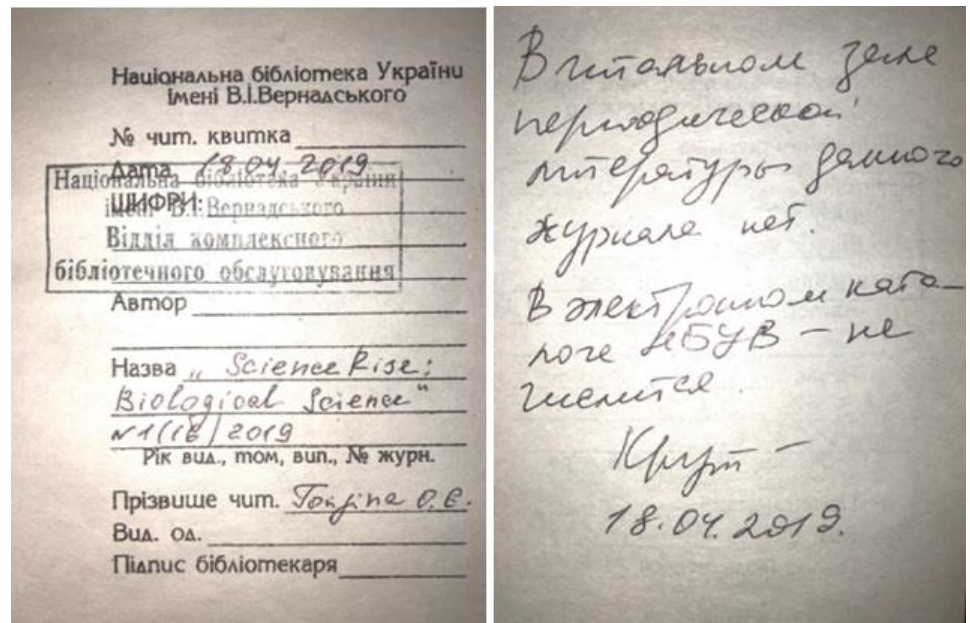 Національна бібліотека України
імені В.І.Вернадського
№ чит. квитка
Дата 18.04.2019
Національна бібліотека України
ШИФРИ:
імені В.І.Вернадського
Відділ комплексного
бібліотечного обслуговування
Автор
Назва „ScienceRise:
Biological Science"
N1(16) 2019
Рік вид., том, вип., № журн.
Прізвище чит. О.Є.
Вид. од.
Підпис бібліотекаря
В читальном зале
периодической
литературы данного
журнала нет.
В электронном ката-
логе НБУВ – не
числится.
18.04.2019.